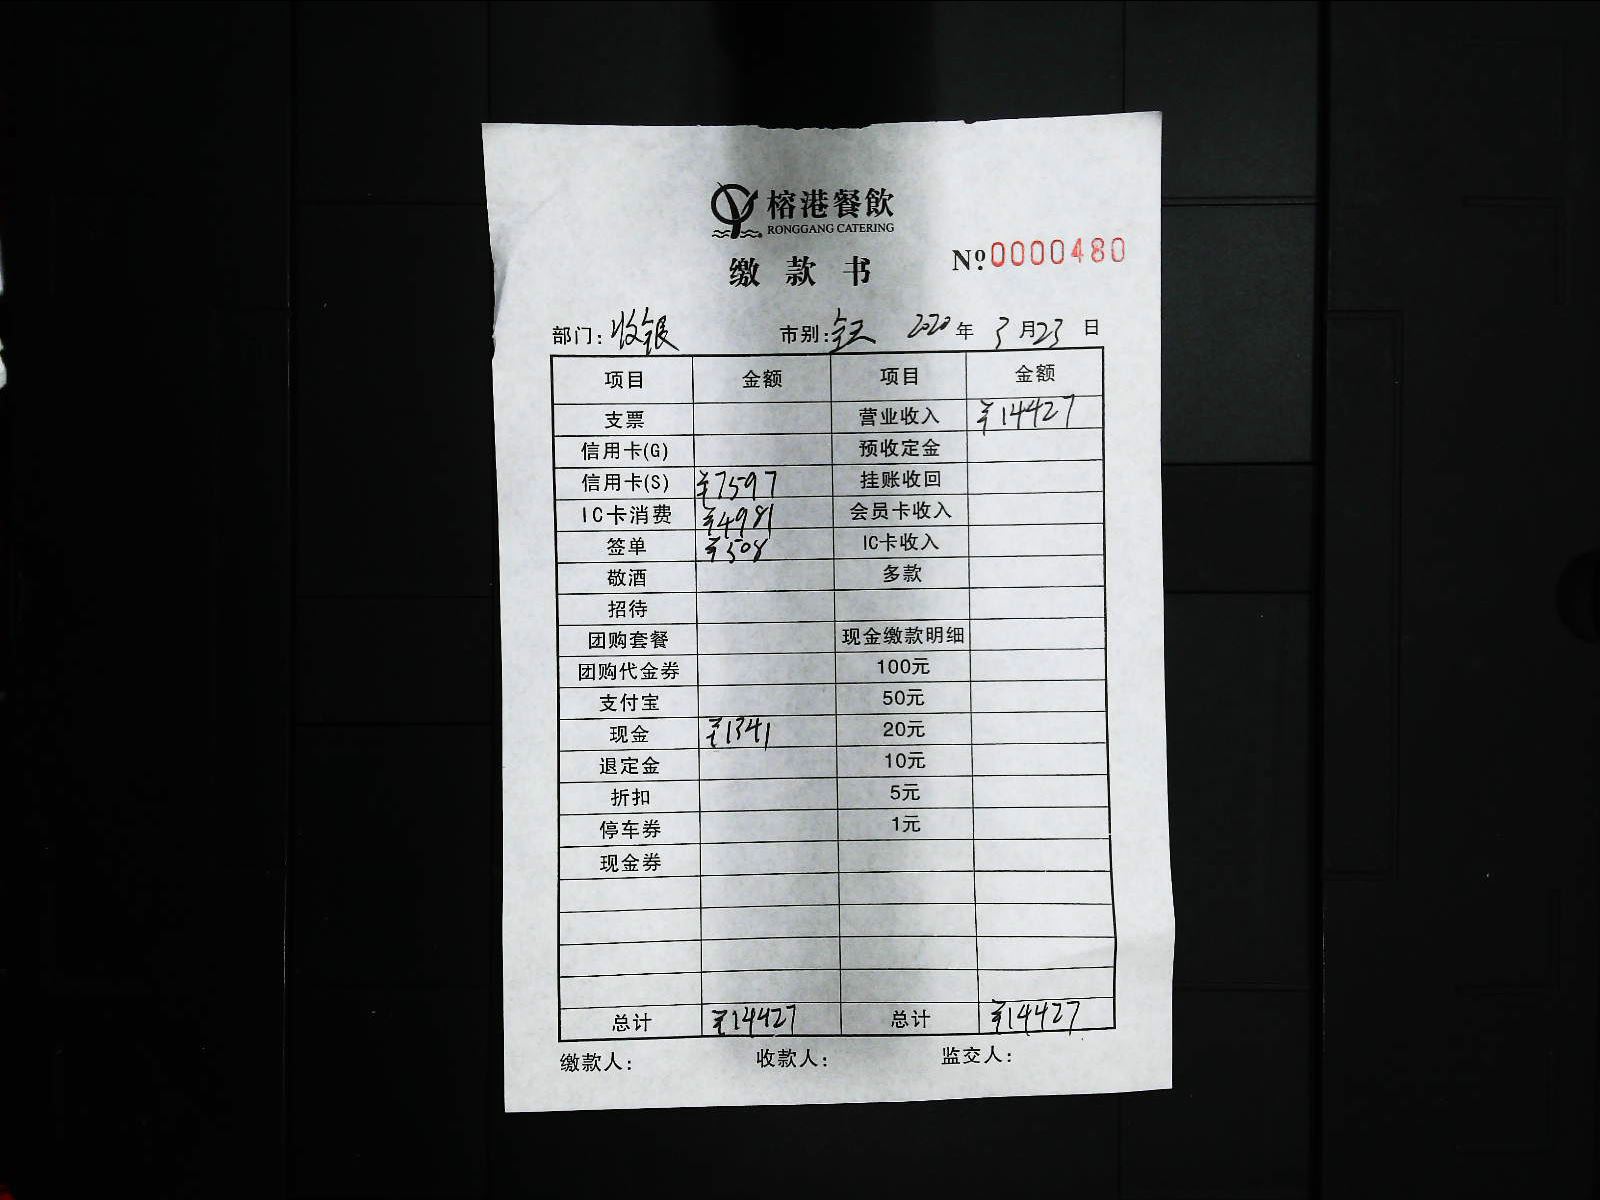 榕港餐飲
RONGGANG CATERING
缴款书
Nº 0000480
部门：收银 市别：全天 2020年3月23日
项目 金额 项目 金额
支票 营业收入 ¥14427
信用卡(G) 预收定金
信用卡(S) ¥7597 挂账收回
IC卡消费 ¥4981 会员卡收入
签单 ¥508 IC卡收入
敬酒 多款
招待
团购套餐 现金缴款明细
团购代金券 100元
支付宝 50元
现金 ¥1341 20元
退定金 10元
折扣 5元
停车券 1元
现金券
总计 ¥14427 总计 ¥14427
缴款人： 收款人： 监交人：